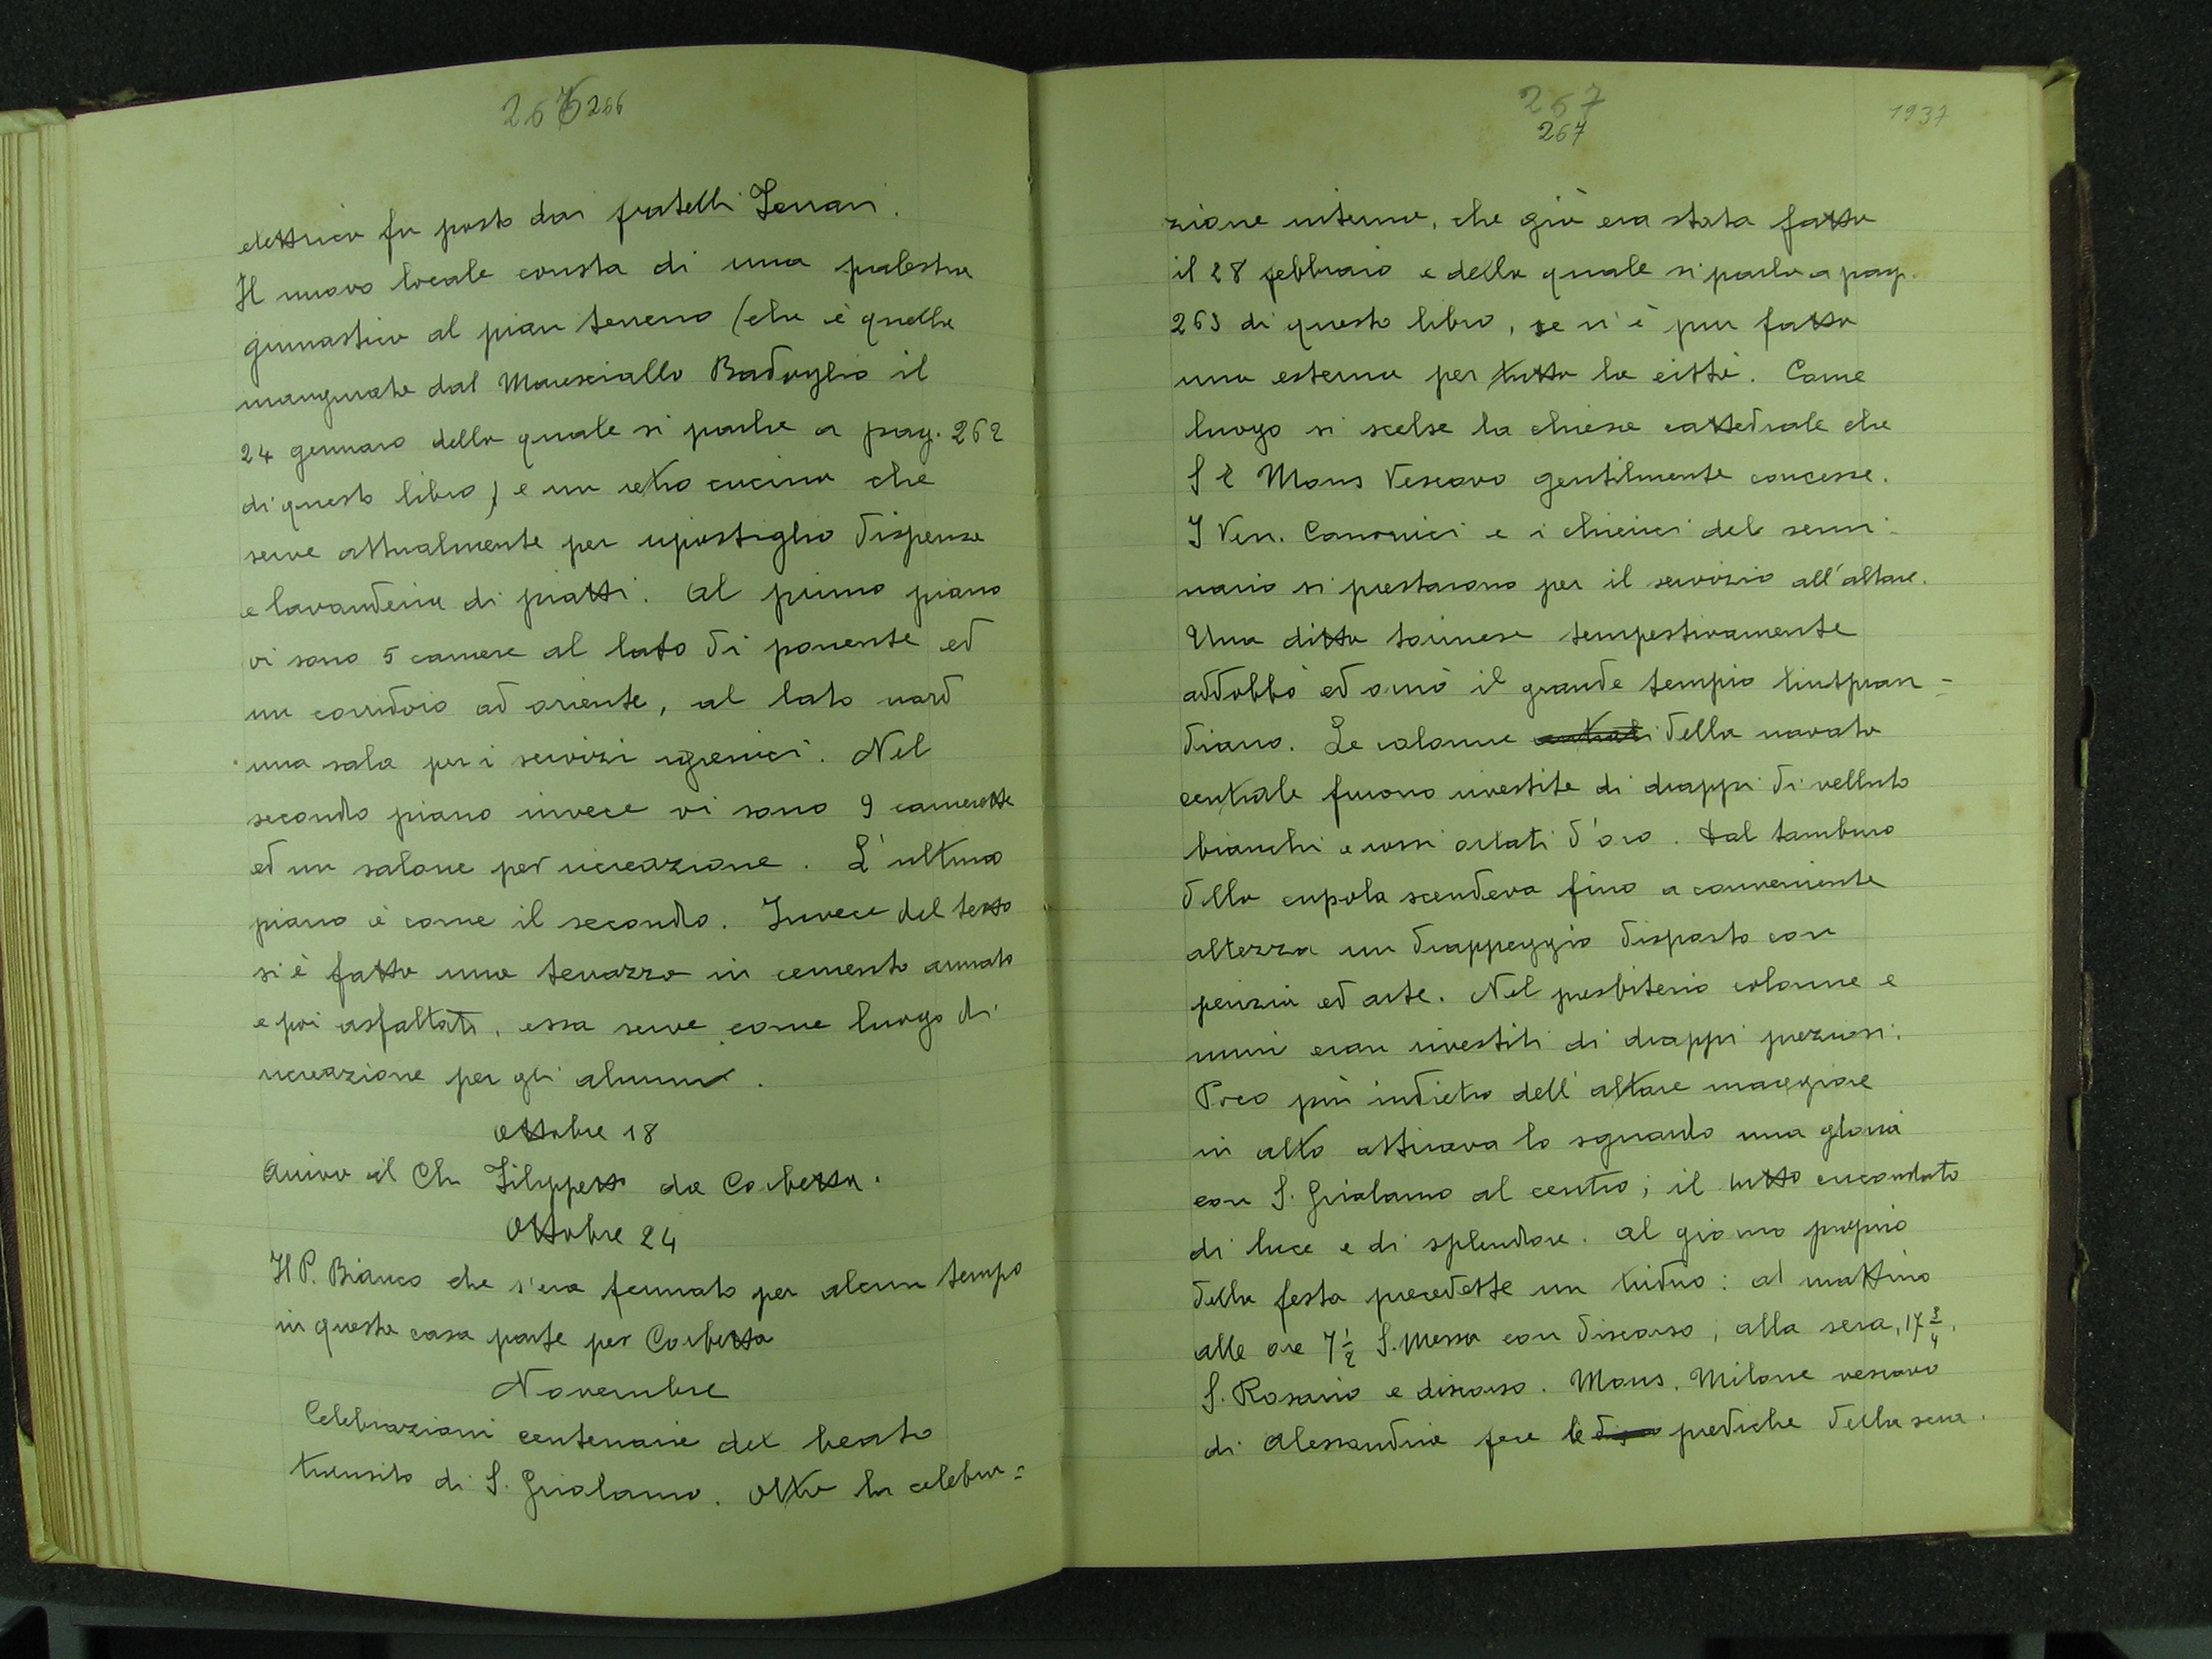 267 266
elettrico fu posto dai fratelli Ferrari.
Il nuovo locale consta di una palestra
ginnastica al pian terreno (che è quella
inaugurata dal Maresciallo Badoglio il
24 gennaio della quale si parla a pag. 262
di questo libro) e un retro cucina che
serve attualmente per ripostiglio dispensa
e lavanderia di piatti. Al primo piano
vi sono 5 camere al lato di ponente ed
un corridoio ad oriente, al lato nord
una sala per i servizi igienici. Nel
secondo piano invece vi sono 9 camerette
ed un salone per ricreazione. L'ultimo
piano è come il secondo. Invece del tetto
si è fatto una terrazza in cemento armato
e poi asfaltata, essa serve come luogo di
ricreazione per gli alunni.
Ottobre 18
Arriva il Ch Filippetto da Corbetta.
Ottobre 24
Il P. Bianco che s'era fermato per alcun tempo
in questa casa parte per Corbetta
Novembre
Celebrazioni centenarie del beato
transito di S. Girolamo. Oltre la celebra=
267
267
1937
zione interna, che già era stata fatta
il 28 febbraio e della quale si parla a pag.
263 di questo libro, se n'è pur fatta
una esterna per tutta la città. Come
luogo si scelse la chiesa cattedrale che
S E Mons Vescovo gentilmente concesse.
I Ven. Canonici e i chierici del semi-
nario si prestarono per il servizio all'altare.
Una ditta torinese tempestivamente
addobbò ed ornò il grande tempio liutpran=
diano. Le colonne centrali della navata
centrale furono rivestite di drappi di velluto
bianchi e rossi orlati d'oro. Dal tamburo
della cupola scendeva fino a conveniente
altezza un drappeggio disposto con
perizia ed arte. Nel presbiterio colonne e
muri eran rivestiti di drappi preziosi.
Poco più indietro dell'altare maggiore
in alto attirava lo sguardo una gloria
con S. Girolamo al centro; il tutto circondato
di luce e di splendore. Al giorno proprio
della festa precedette un triduo: al mattino
alle ore 7 1/2 S. Messa con discorso; alla sera, 17 3/4,
S. Rosario e discorso. Mons. Milone vescovo
di Alessandria fece le prediche della sera.